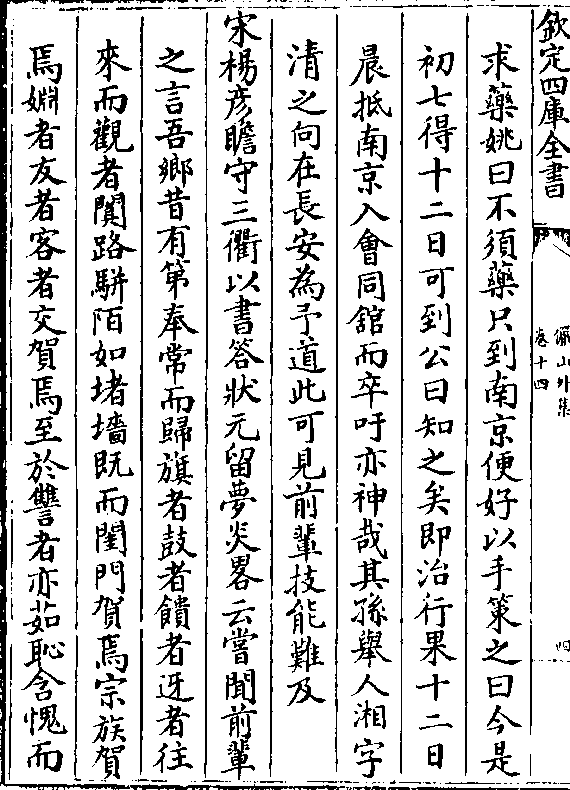 欽定四庫全書
儼山外集
卷十四
四
求藥姚曰不須藥只到南京便好以手策之曰今是
初七得十二日可到公曰知之矣即治行果十二日
晨抵南京入會同舘而卒吁亦神哉其孫舉人湘字
清之向在長安為予道此可見前輩技能難及
宋楊彥瞻守三衢以書答狀元留夢炎畧云嘗聞前輩
之言吾鄉昔有第奉常而歸旗者鼓者饋者迓者往
來而觀者闐路駢陌如堵墻既而閨門賀焉宗族賀
焉婣者友者客者交賀焉至於讐者亦茹恥含愧而